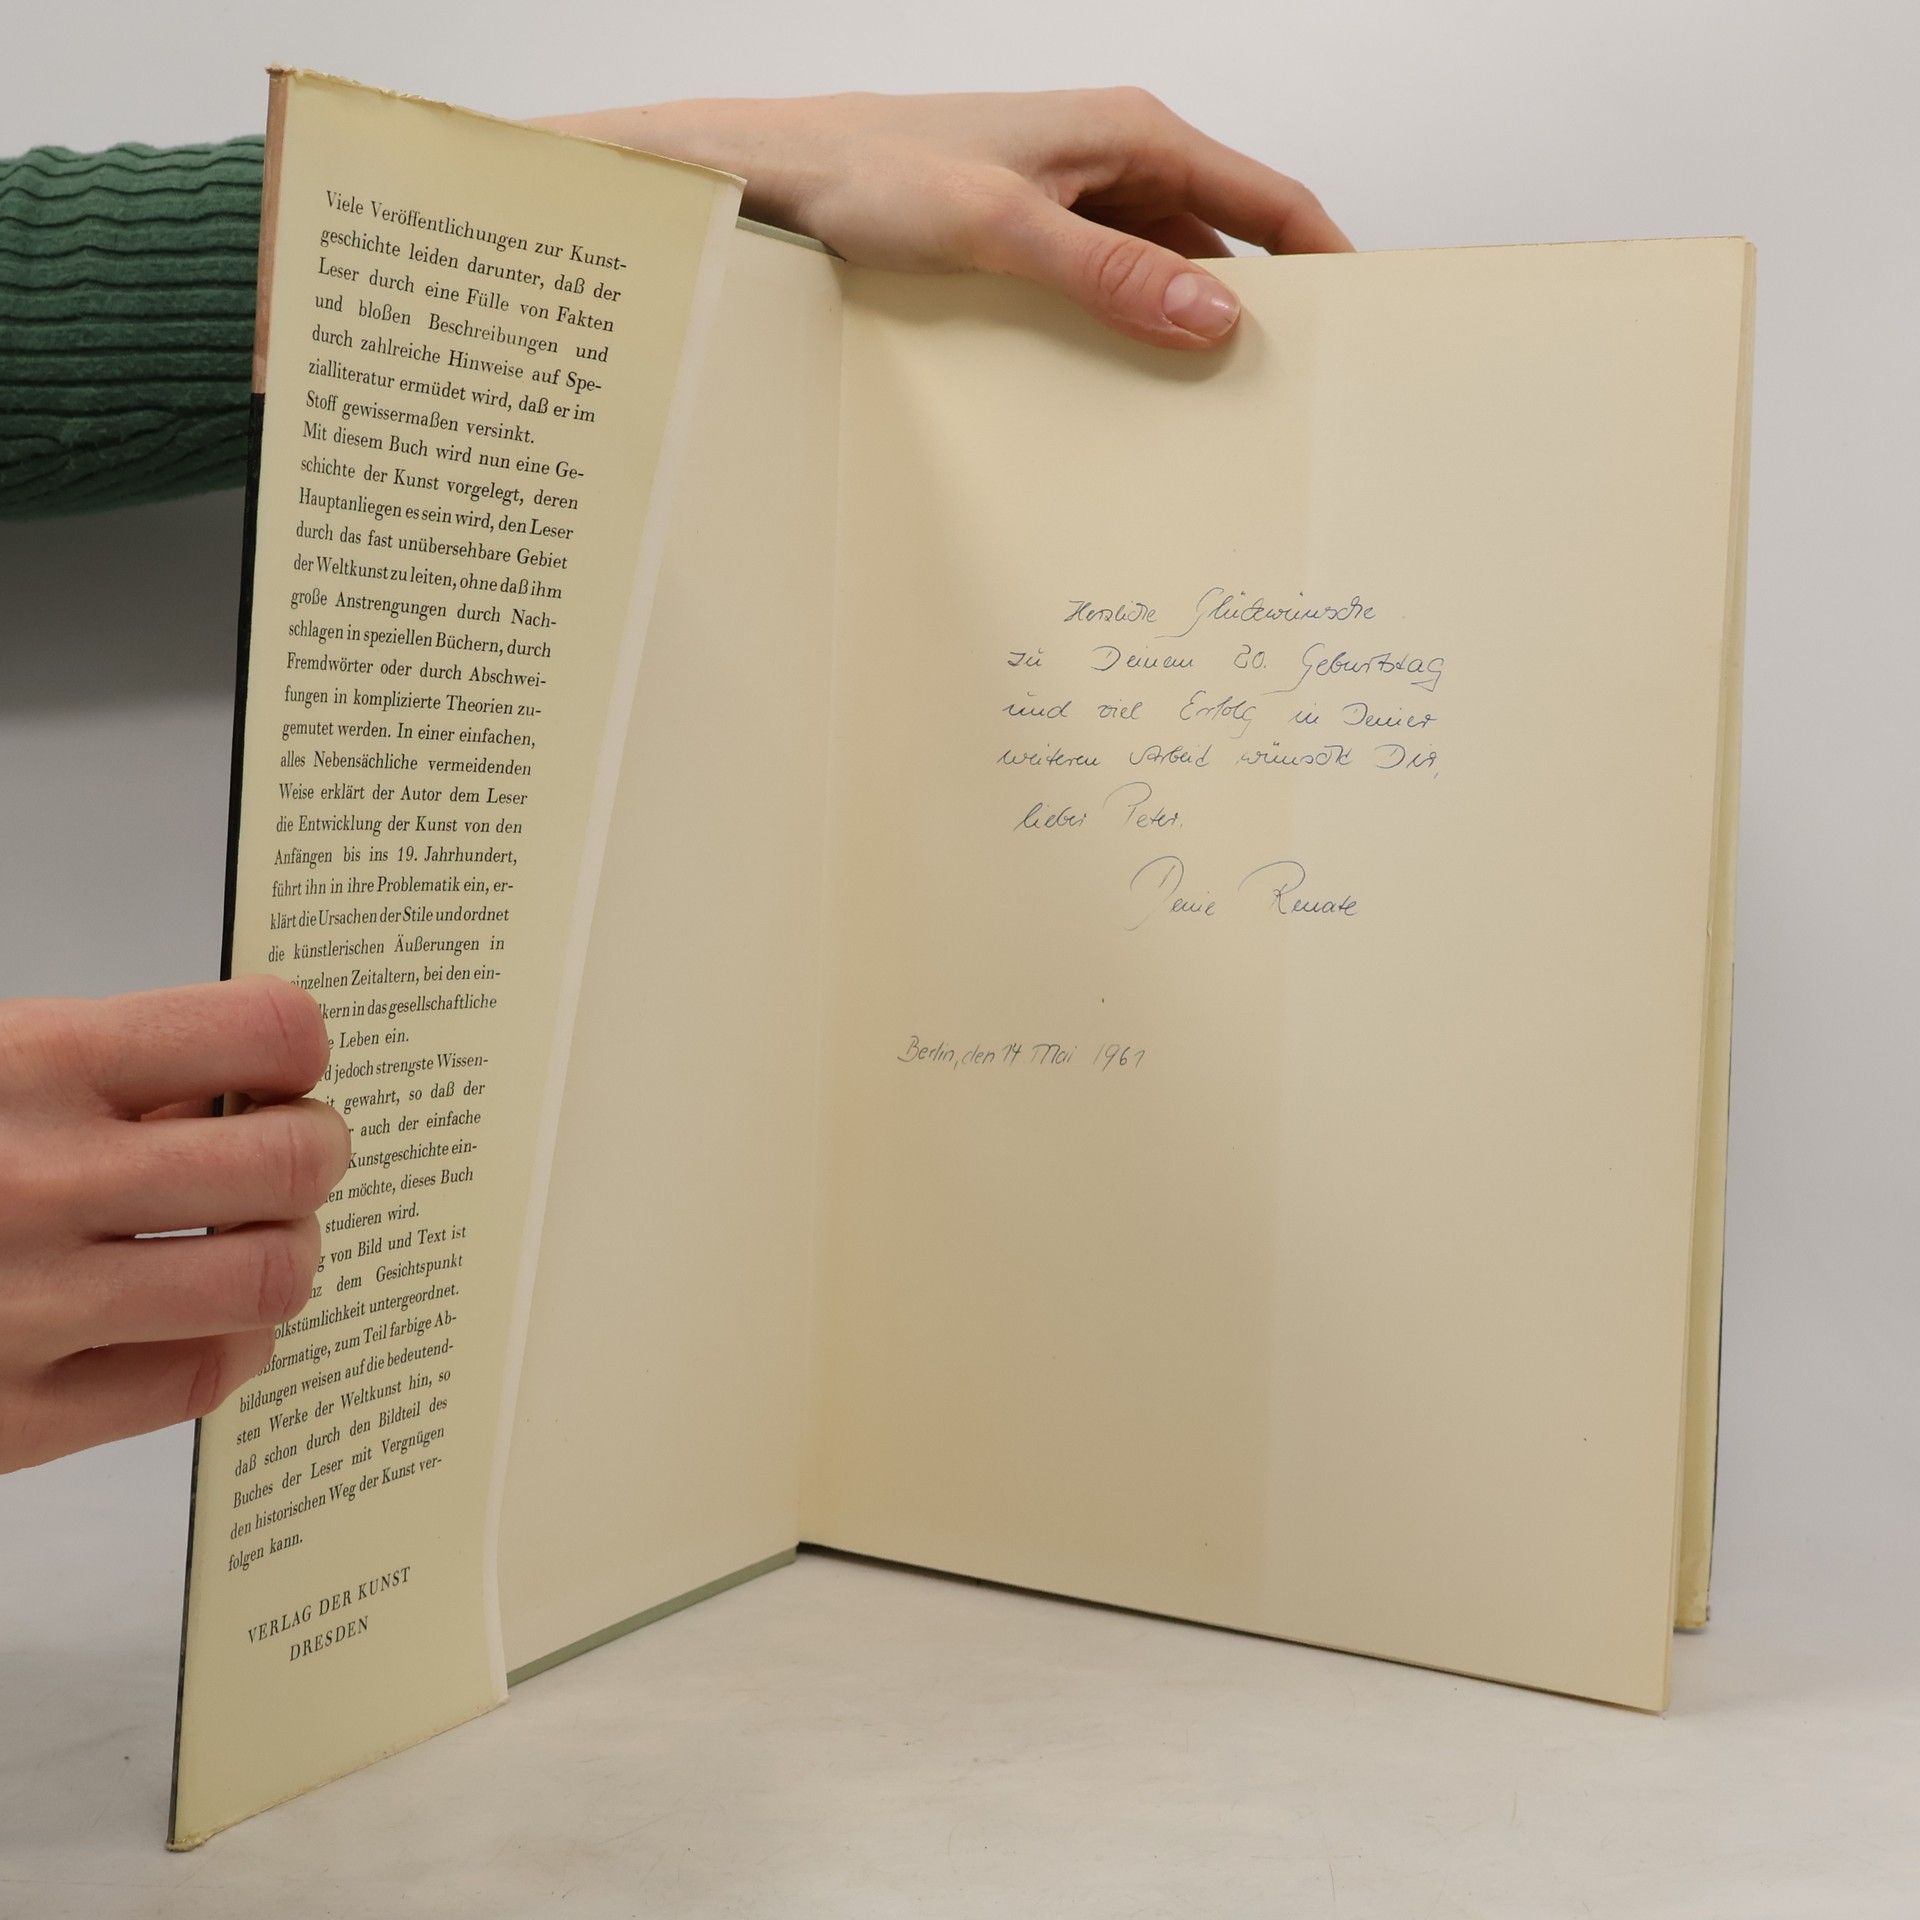 Viele Veröffentlichungen zur Kunst-
geschichte leiden darunter, daß der
Leser durch eine Fülle von Fakten
und bloßen Beschreibungen und
durch zahlreiche Hinweise auf Spe-
zialliteratur ermüdet wird, daß er im
Stoff gewissermaßen versinkt.
Mit diesem Buch wird nun eine Ge-
schichte der Kunst vorgelegt, deren
Hauptanliegen es sein wird, den Leser
durch das fast unübersehbare Gebiet
der Weltkunst zu leiten, ohne daß ihm
große Anstrengungen durch Nach-
schlagen in speziellen Büchern, durch
Fremdwörter oder durch Abschwei-
fungen in komplizierte Theorien zu-
gemutet werden. In einer einfachen,
alles Nebensächliche vermeidenden
Weise erklärt der Autor dem Leser
die Entwicklung der Kunst von den
Anfängen bis ins 19. Jahrhundert,
führt ihn in ihre Problematik ein, er-
klärt die Ursachen der Stile und ordnet
die künstlerischen Äußerungen in
einzelnen Zeitaltern, bei den ein-
lkern in das gesellschaftliche
e Leben ein.
rd jedoch strengste Wissen-
it gewahrt, so daß der
r auch der einfache
Kunstgeschichte ein-
en möchte, dieses Buch
studieren wird.
g von Bild und Text ist
nz dem Gesichtspunkt
olkstümlichkeit untergeordnet.
oßformatige, zum Teil farbige Ab-
bildungen weisen auf die bedeutend-
sten Werke der Weltkunst hin, so
daß schon durch den Bildteil des
Buches der Leser mit Vergnügen
den historischen Weg der Kunst ver-
folgen kann.
VERLAG DER KUNST
DRESDEN
Herzliche Glückwünsche
zu Deinem 20. Geburtstag
und viel Erfolg in Deiner
weiteren Arbeit wünscht Dir,
lieber Peter.
Deine Renate
Berlin, den 14. Mai 1961